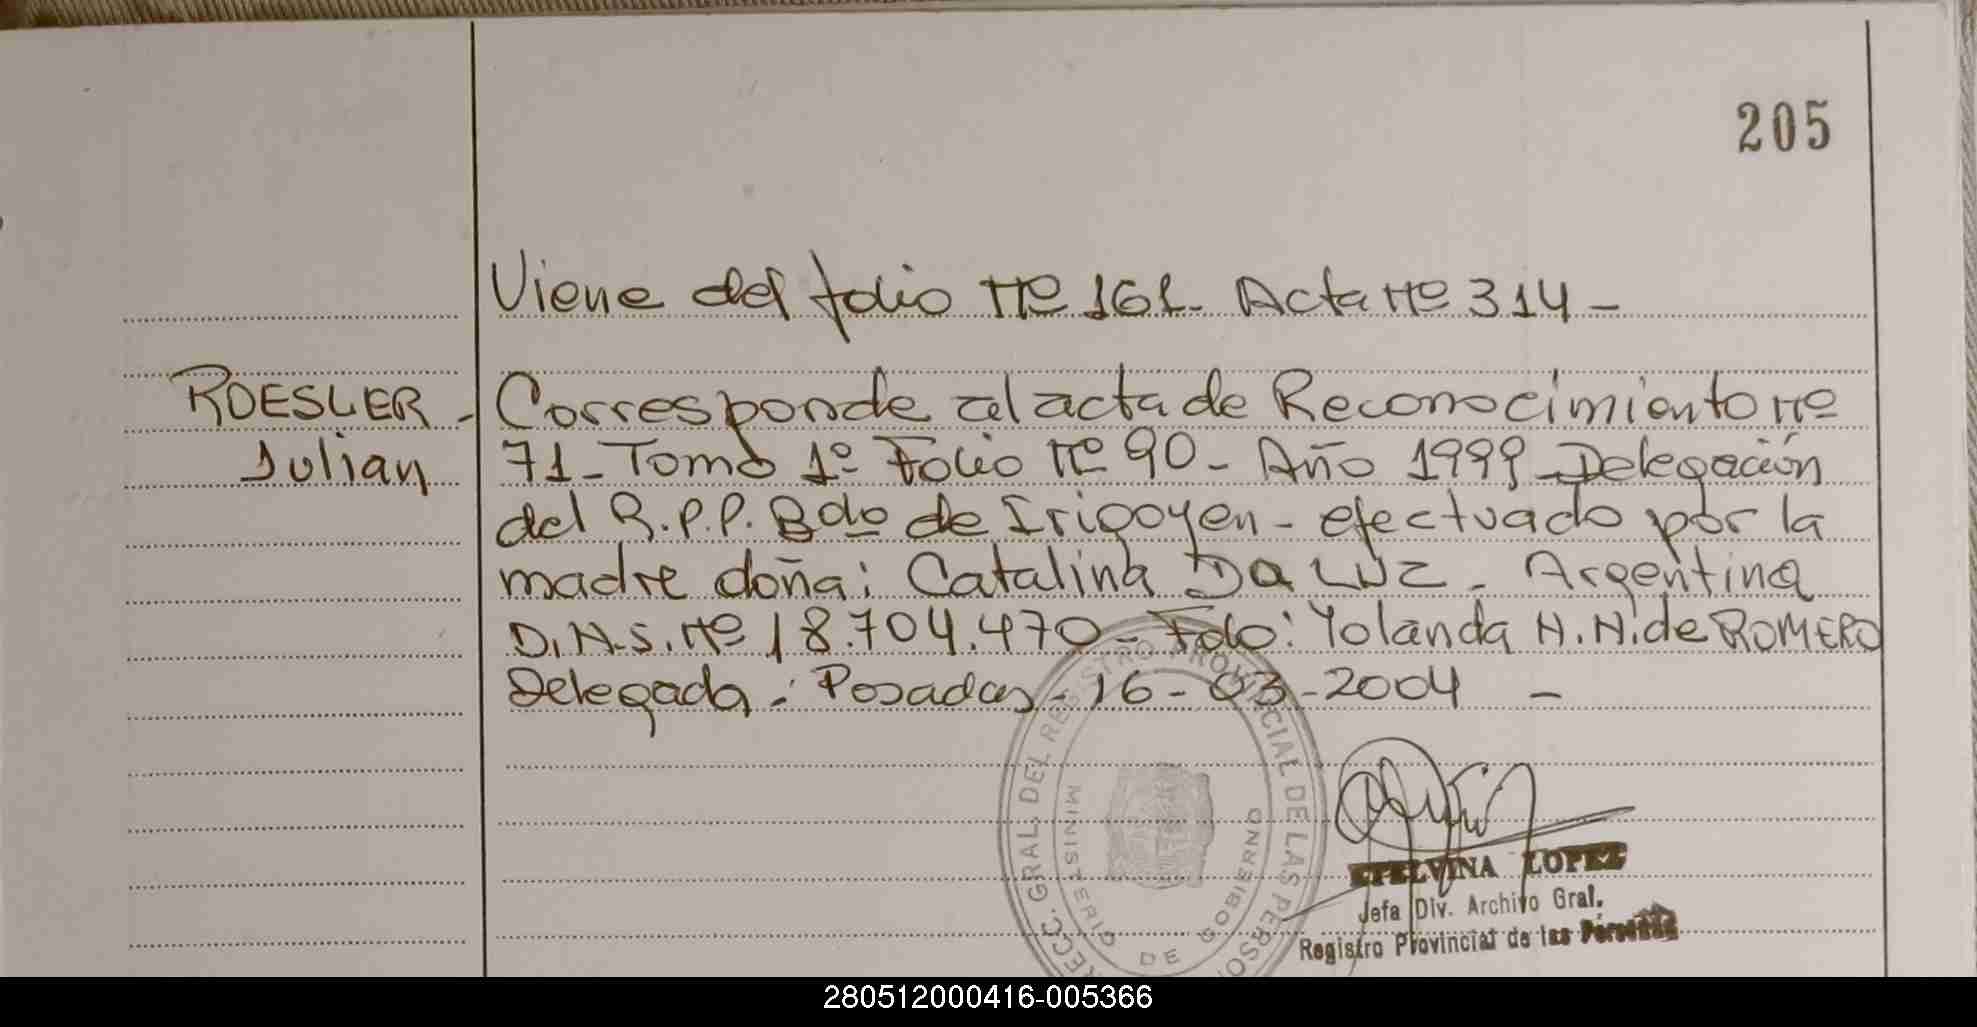 205
Viene del folio Nº 161- Acta Nº 314 -
ROESLER - Corresponde al acta de Reconocimiento Nº
Julian 71- Tomo 1º Folio Nº 90- Año 1999- Delegación
del R.P.P. Bdo de Irigoyen - efectuado por la
madre doña: Catalina DA LUZ - Argentina
D.N.I. Nº 18.704.470 - Fdo: Yolanda H. N. de ROMERO
Delegada - Posadas - 16 - 03 - 2004 -
DIRECC. GRAL. DEL REGISTRO PROVINCIAL DE LAS PERSO
MINISTERIO DE GOBIERNO
ETELVINA LOPEZ
Jefa Div. Archivo Gral.
Registro Provincial de las Personas
280512000416-005366